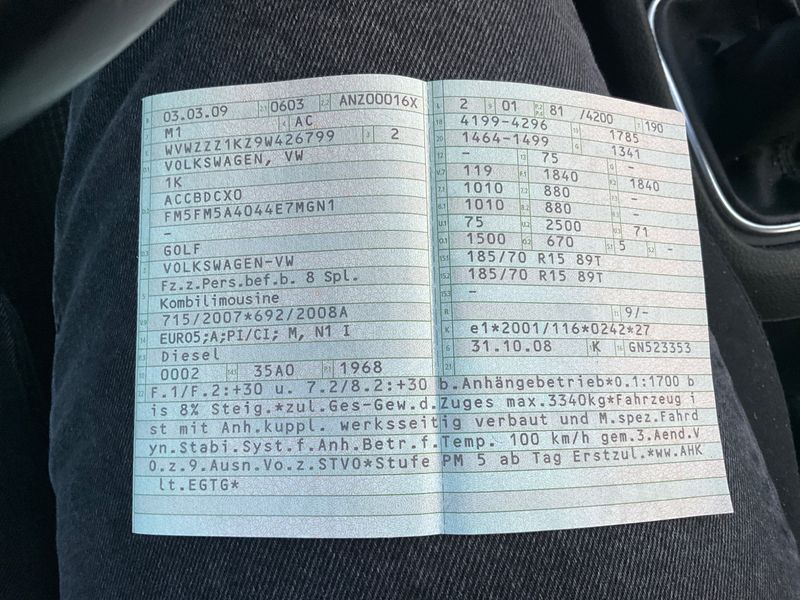 03.03.09 0603 ANZ00016X
M1 AC
WVWZZZ1KZ9W426799 2
VOLKSWAGEN, VW
1K
ACCBDCX0
FM5FM5A4044E7MGN1
-
GOLF
VOLKSWAGEN-VW
Fz.z.Pers.bef.b. 8 Spl.
Kombilimousine
715/2007*692/2008A
EURO5;A;PI/CI; M, N1 I
Diesel
0002 35A0 1968
2 01 81 /4200 190
4199-4296 1785
1464-1499 1341
- 75 -
119 1840 -
1010 880 1840
1010 880 -
75 2500 71
1500 670 5 -
185/70 R15 89T
185/70 R15 89T
-
9/-
e1*2001/116*0242*27
31.10.08 K GN523353
F.1/F.2:+30 u. 7.2/8.2:+30 b.Anhängebetrieb*0.1:1700 b
is 8% Steig.*zul.Ges-Gew.d.Zuges max.3340kg*Fahrzeug i
st mit Anh.kuppl. werksseitig verbaut und M.spez.Fahrd
yn.Stabi.Syst.f.Anh.Betr.f.Temp. 100 km/h gem.3.Aend.V
O.z.9.Ausn.Vo.z.STVO*Stufe PM 5 ab Tag Erstzul.*ww.AHK
lt.EGTG*